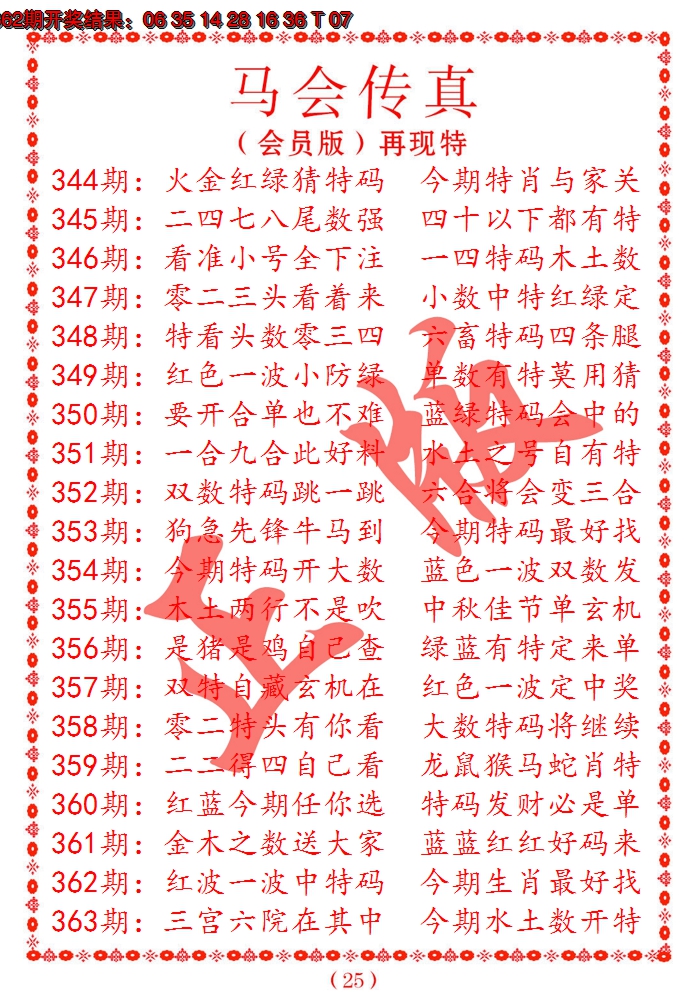 362期开奖结果：06 35 14 28 16 36 T 07
马会传真
（会员版）再现特
344期：火金红绿猜特码 今期特肖与家关
345期：二四七八尾数强 四十以下都有特
346期：看准小号全下注 一四特码木土数
347期：零二三头看着来 小数中特红绿定
348期：特看头数零三四 六畜特码四条腿
349期：红色一波小防绿 单数有特莫用猜
350期：要开合单也不难 蓝绿特码会中的
351期：一合九合此好料 水土之号自有特
352期：双数特码跳一跳 六合将会变三合
353期：狗急先锋牛马到 今期特码最好找
354期：今期特码开大数 蓝色一波双数发
355期：木土两行不是吹 中秋佳节单玄机
356期：是猪是鸡自己查 绿蓝有特定来单
357期：双特自藏玄机在 红色一波定中奖
358期：零二特头有你看 大数特码将继续
359期：二二得四自己看 龙鼠猴马蛇肖特
360期：红蓝今期任你选 特码发财必是单
361期：金木之数送大家 蓝蓝红红好码来
362期：红波一波中特码 今期生肖最好找
363期：三宫六院在其中 今期水土数开特
正版
（25）